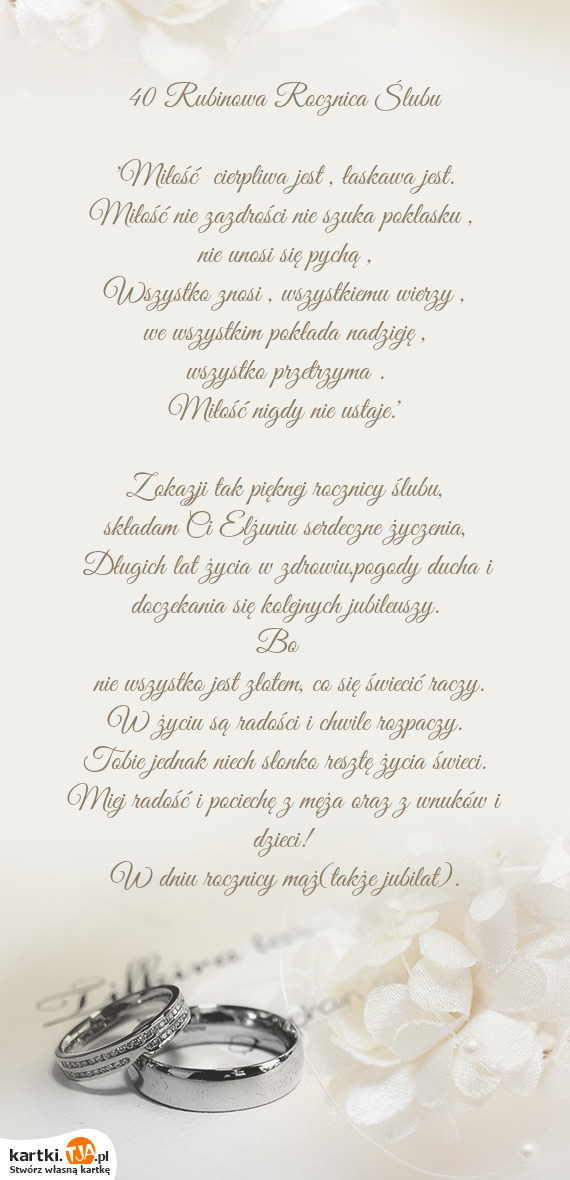 40 Rubinowa Rocznica Ślubu
'Miłość cierpliwa jest , łaskawa jest.
Miłość nie zazdrości nie szuka poklasku ,
nie unosi się pychą ,
Wszystko znosi , wszystkiemu wierzy ,
we wszystkim pokłada nadzieję ,
wszystko przetrzyma .
Miłość nigdy nie ustaje.'
Zokazji tak pięknej rocznicy ślubu,
składam Ci Elżuniu serdeczne życzenia,
Długich lat życia w zdrowiu,pogody ducha i
doczekania się kolejnych jubileuszy.
Bo
nie wszystko jest złotem, co się świecić raczy.
W życiu są radości i chwile rozpaczy.
Tobie jednak niech słonko resztę życia świeci.
Miej radość i pociechę z męża oraz z wnuków i
dzieci!
W dniu rocznicy mąż(także jubilat).
kartki.TJA.pl
Stwórz własną kartkę